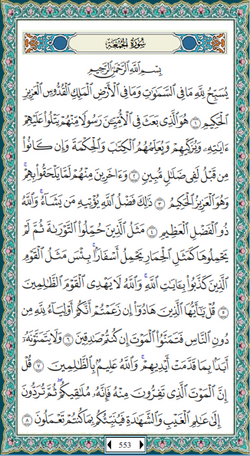 سُورَةُ الْجُمُعَةِ
بِسْمِ اللَّهِ الرَّحْمَٰنِ الرَّحِيمِ
يُسَبِّحُ لِلَّهِ مَا فِي السَّمَاوَاتِ وَمَا فِي الْأَرْضِ الْمَلِكِ الْقُدُّوسِ الْعَزِيزِ
الْحَكِيمِ ١ هُوَ الَّذِي بَعَثَ فِي الْأُمِّيِّينَ رَسُولًا مِنْهُمْ يَتْلُو عَلَيْهِمْ
آيَاتِهِ وَيُزَكِّيهِمْ وَيُعَلِّمُهُمُ الْكِتَابَ وَالْحِكْمَةَ وَإِنْ كَانُوا
مِنْ قَبْلُ لَفِي ضَلَالٍ مُبِينٍ ٢ وَآخَرِينَ مِنْهُمْ لَمَّا يَلْحَقُوا بِهِمْ
وَهُوَ الْعَزِيزُ الْحَكِيمُ ٣ ذَٰلِكَ فَضْلُ اللَّهِ يُؤْتِيهِ مَنْ يَشَاءُ وَاللَّهُ
ذُو الْفَضْلِ الْعَظِيمِ ٤ مَثَلُ الَّذِينَ حُمِّلُوا التَّوْرَاةَ ثُمَّ لَمْ
يَحْمِلُوهَا كَمَثَلِ الْحِمَارِ يَحْمِلُ أَسْفَارًا بِئْسَ مَثَلُ الْقَوْمِ
الَّذِينَ كَذَّبُوا بِآيَاتِ اللَّهِ وَاللَّهُ لَا يَهْدِي الْقَوْمَ الظَّالِمِينَ
٥ قُلْ يَا أَيُّهَا الَّذِينَ هَادُوا إِنْ زَعَمْتُمْ أَنَّكُمْ أَوْلِيَاءُ لِلَّهِ مِنْ
دُونِ النَّاسِ فَتَمَنَّوُا الْمَوْتَ إِنْ كُنْتُمْ صَادِقِينَ ٦ وَلَا يَتَمَنَّوْنَهُ
أَبَدًا بِمَا قَدَّمَتْ أَيْدِيهِمْ وَاللَّهُ عَلِيمٌ بِالظَّالِمِينَ ٧ قُلْ
إِنَّ الْمَوْتَ الَّذِي تَفِرُّونَ مِنْهُ فَإِنَّهُ مُلَاقِيكُمْ ثُمَّ تُرَدُّونَ
إِلَىٰ عَالِمِ الْغَيْبِ وَالشَّهَادَةِ فَيُنَبِّئُكُمْ بِمَا كُنْتُمْ تَعْمَلُونَ ٨
553